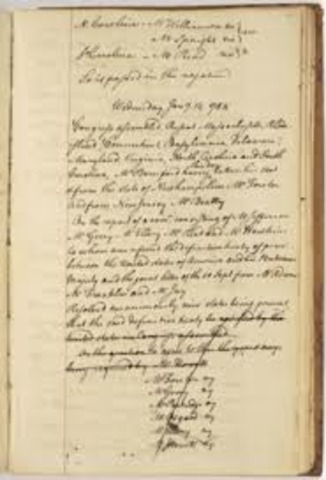 N. Carolina - Mr Williamson no
Mr Spaight no
S Carolina - Mr Read
So it passed in the negative
Wednesday Jany. 14 1784
Congress assembled, Present Massachusetts, Rhode
island Connecticut Pennsylvania Delaware
Maryland Virginia, North Carolina and South
Carolina, Mr having taken his seat
& from the state of Newhampshire Mr Foster
and from New Jersey Mr Beatty
On the report of a comee. consisting of Mr Jefferson
Mr Gerry Mr Ellery Mr Read and Mr Hawkins
to whom were referred the definitive treaty of peace
between the United States of America and his Britannic
Majesty and the joint letter of the 10 Sept from Mr Adams
Mr Franklin and Mr Jay
Resolved unanimously nine states being present
that the said definitive treaty be ratified by the
united states in Congress assembled
On the question to agree to
being required by Mr
Mr Foster ay
Mr Gerry ay
Mr Partridge ay
Mr Osgood ay
Mr Ellery ay
Mr Howell ay